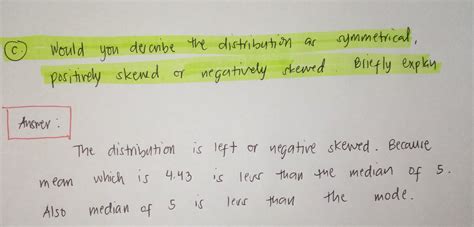 C. Would you describe the distribution as symmetrical,
positively skewed or negatively skewed. Briefly explain
Answer :
The distribution is left or negative skewed. Because
mean which is 4.43 is less than the median of 5.
Also median of 5 is less than the mode.